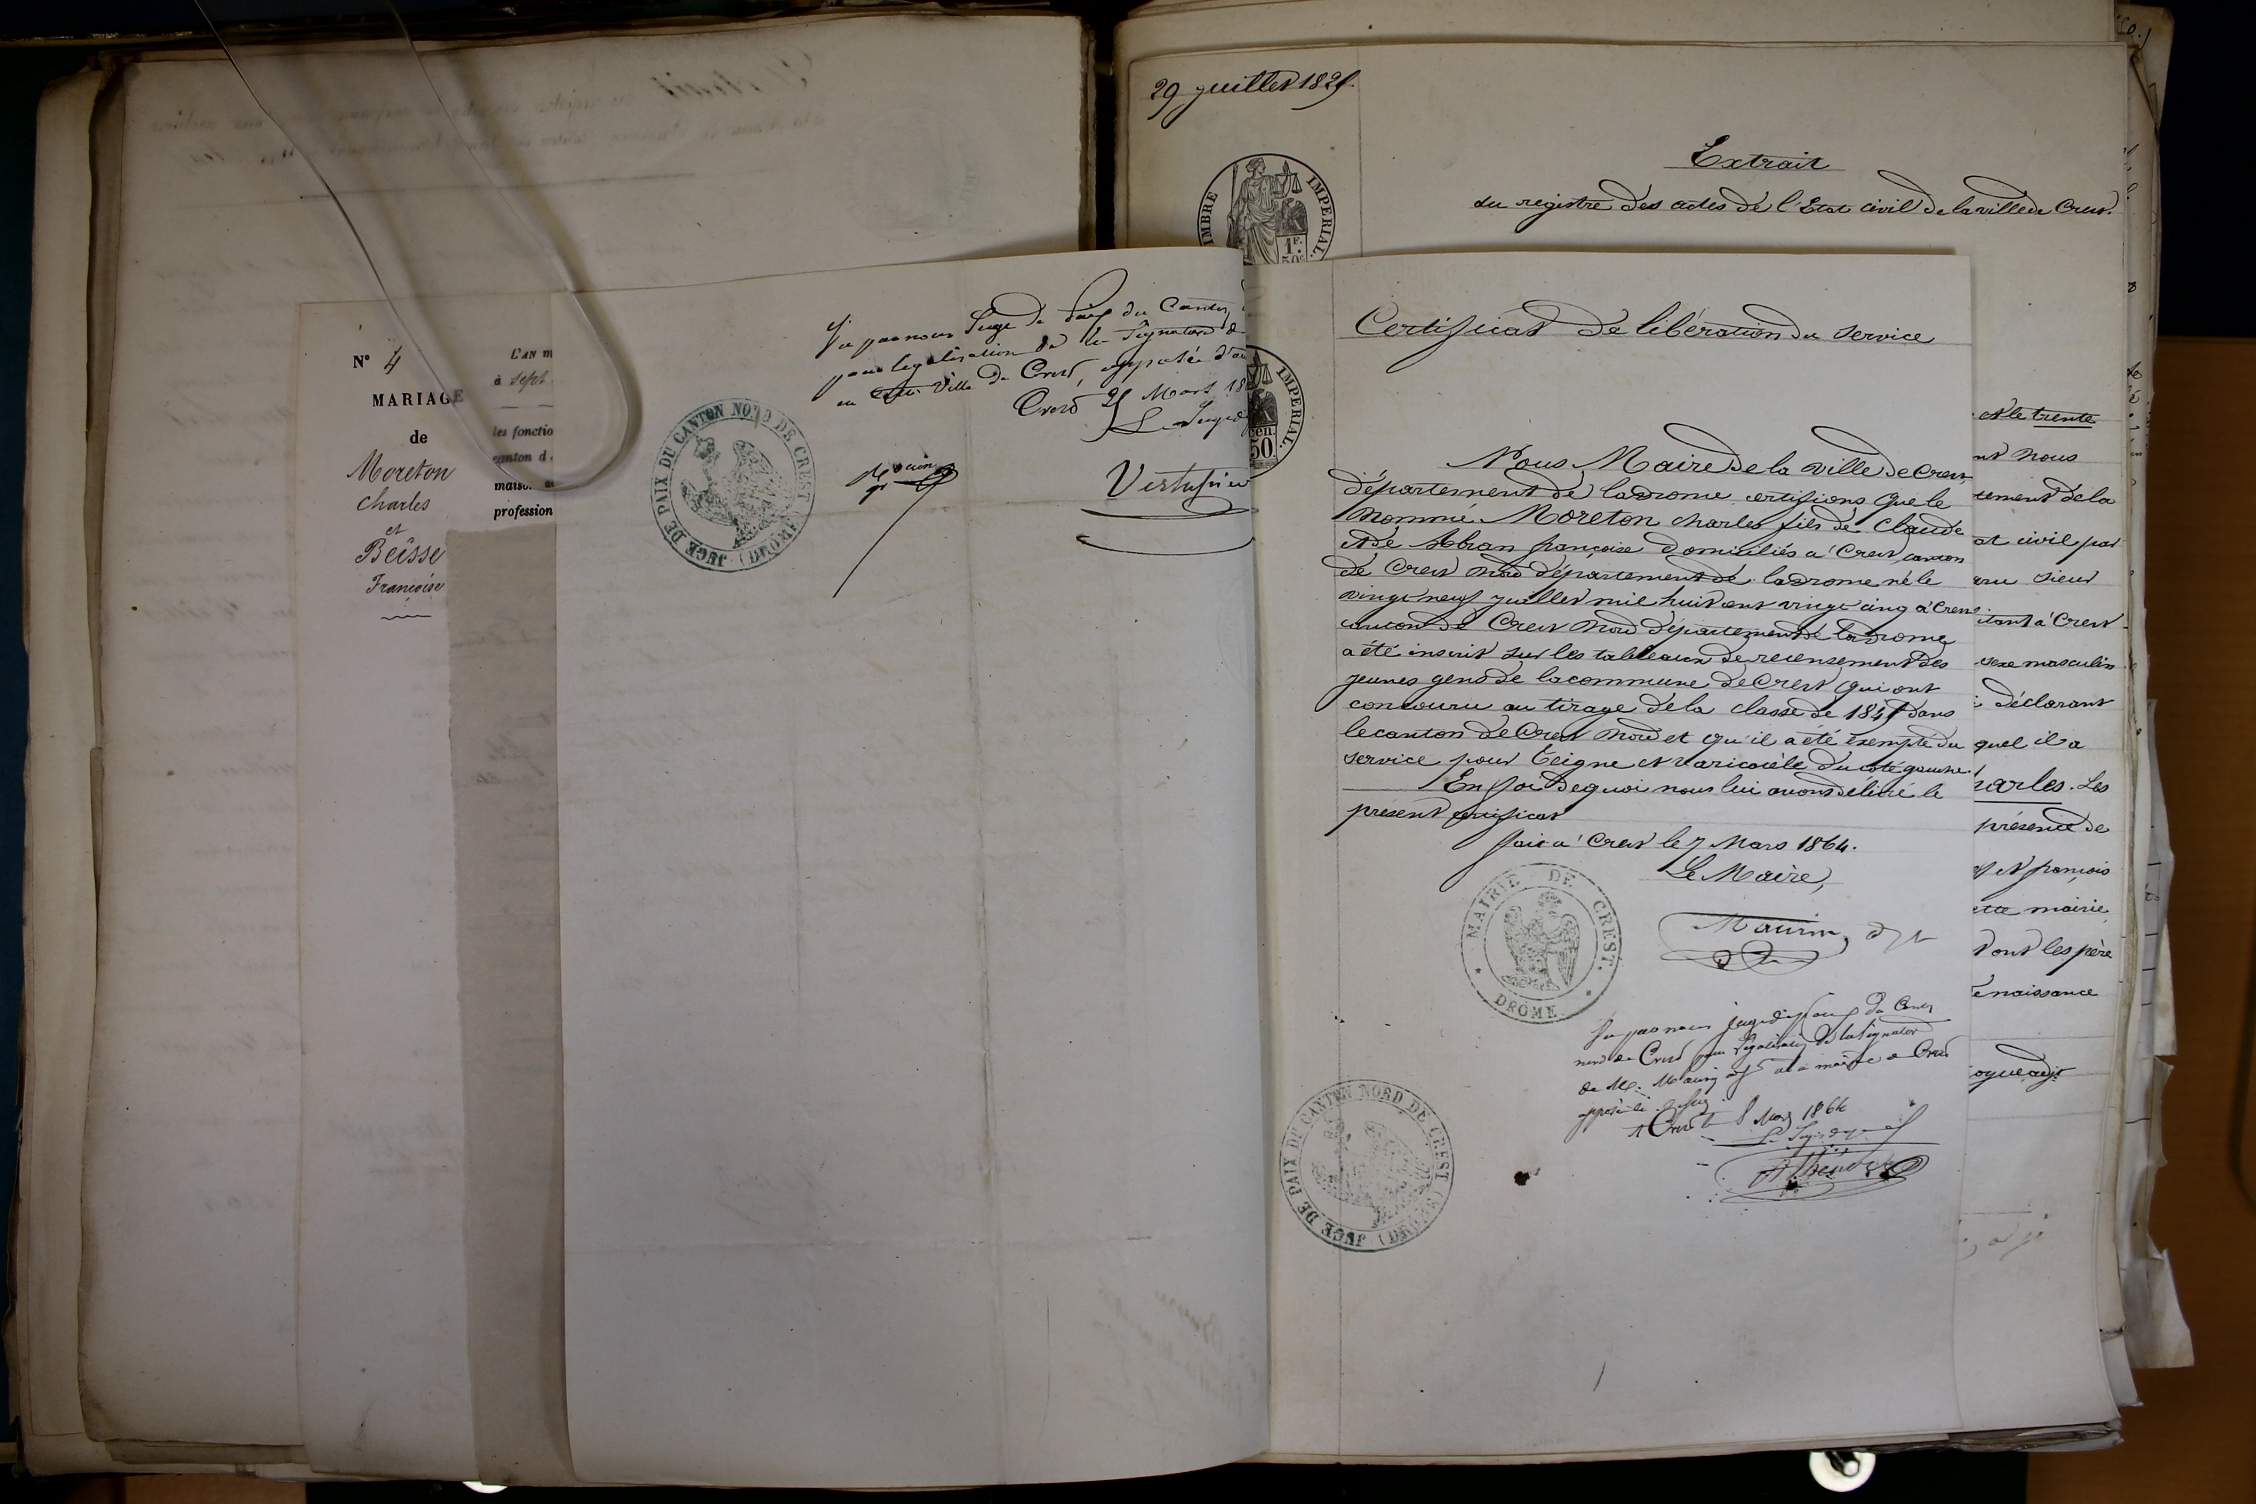 N° 4
MARIAGE
de
Moreton
Charles
et
Beïsse
Françoise
L'AN m
à sept
les fonctio
canton d
maiso
profession
Vu par nous Juge de Paix du Canton
pour légalisation de la signature d
en Ville de Crest, apposée d'au
Crest Mars 18
Le Juge d
JUGE DE PAIX DU CANTON NORD DE CREST (DROME)
29 Juillet 1825.
TIMBRE IMPERIAL.
1F.
50c
Extrait
du registre des actes de l'Etat civil de la ville de Crest.
IMPERIAL.
cen.
50.
Certificat de libération du service
Nous Maire de la ville de Crest,
département de la drome certifions que le
nommé Moreton charles fils de Claude
et de françoise domiciliés à Crest canton
de Crest Nord département de la drome né le
vingt neuf juillet mil huit cent vingt cinq à Crest
canton de Crest Nord département de la drome
a été inscrit sur les tableaux de recensement des
jeunes gens de la commune de Crest qui ont
concouru au tirage de la classe de 1845 dans
le canton de Crest Nord et qu'il a été exempté du
service pour teigne et varicocèle du coté gauche.
En foi de quoi nous lui avons délivré le
present certificat
fait à Crest le 7 Mars 1864.
Le Maire,
Maurin, adjt
MAIRIE DE CREST.
DROME
Vu par nous juge de paix du Canton
nord de Crest pour légalisation de la signature
de M. Maurin adjt à la mairie de Crest
apposée ci-dessus
A Crest le 8 Mars 1864
Le Juge de paix
JUGE DE PAIX DU CANTON NORD DE CREST (DROME)
et le trente
nt nous
tement de la
at civil par
aru sieur
itant à Crest
sexe masculin
déclarant
quel il a
harles. Les
présence de
et françois
ette mairie
dont les père
e naissance